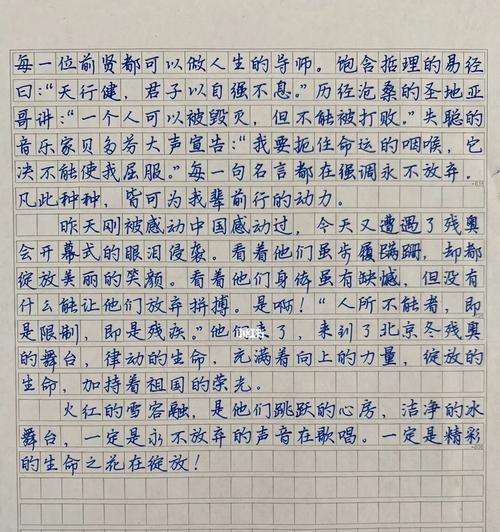 每一位前贤都可以做人生的导师。饱含哲理的易经
曰：“天行健，君子以自强不息。”历经沧桑的圣地亚
哥讲：“一个人可以被毁灭，但不能被打败。”失聪的
音乐家贝多芬大声宣告：“我要扼住命运的咽喉，它
决不能使我屈服。”每一句名言都在强调永不放弃。
凡此种种，皆可为我辈前行的动力。
昨天刚被感动中国感动过，今天又遭遇了残奥
会开幕式的眼泪侵袭。看着他们虽步履蹒跚，却都
绽放美丽的笑颜。看着他们身体虽有缺憾，但没有
什么能让他们放弃拼搏。是啊！“人所不能者，即
是限制，即是残疾。”他们来了，来到了北京冬残奥
的舞台，律动的生命，充满着向上的力量，绽放的
生命，加持着祖国的荣光。
火红的雪容融，是他们跳跃的心房，洁净的冰
舞台，一定是永不放弃的声音在歌唱。一定是精彩
的生命之花在绽放！